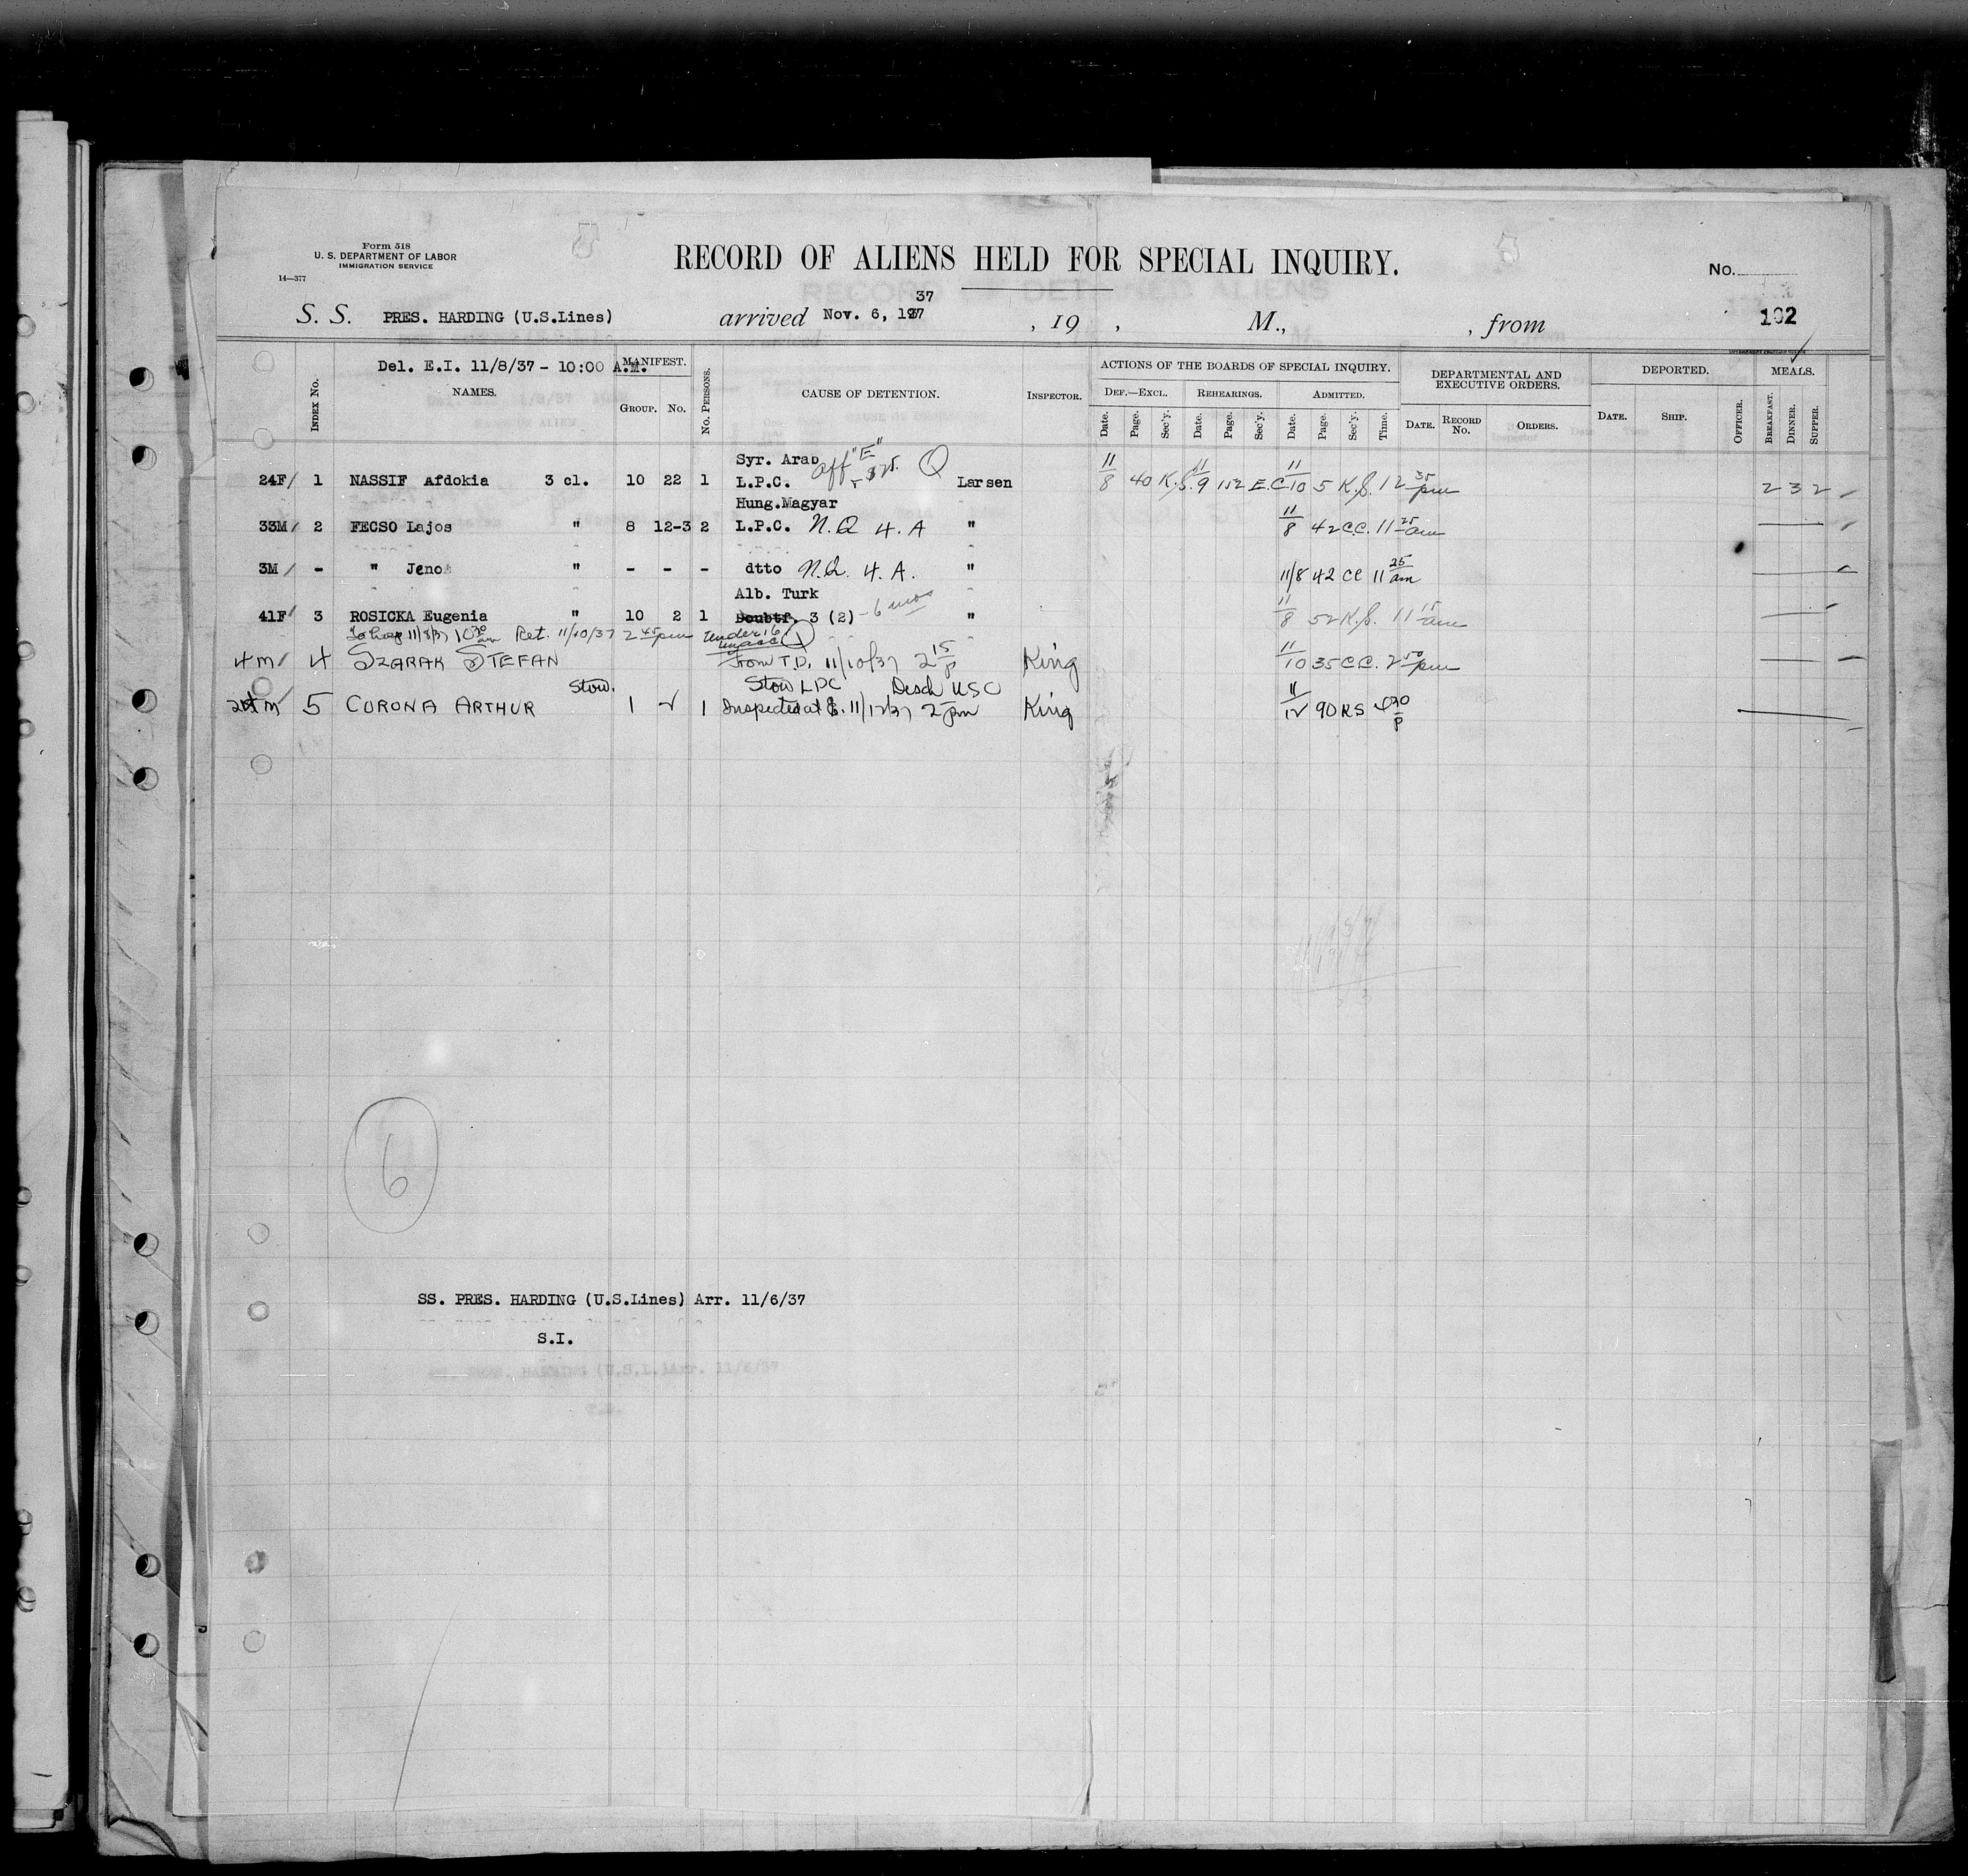 Form 518
U. S. DEPARTMENT OF LABOR
IMMIGRATION SERVICE
14—377
RECORD OF ALIENS HELD FOR SPECIAL INQUIRY.
No.
S. S. PRES. HARDING (U.S.Lines) arrived Nov. 6, 1937 , 19 , M., , from 102
37
Del. E.I. 11/8/37 - 10:00 A.M.
INDEX No. NAMES. MANIFEST. GROUP. No. No. PERSONS. CAUSE OF DETENTION. INSPECTOR. ACTIONS OF THE BOARDS OF SPECIAL INQUIRY. DEPARTMENTAL AND EXECUTIVE ORDERS. DEPORTED. MEALS.
DEF.—EXCL. REHEARINGS. ADMITTED.
Date. Page. Sec'y. Date. Page. Sec'y. Date. Page. Sec'y. Time. DATE. RECORD No. ORDERS. DATE. SHIP. OFFICER. BREAKFAST. DINNER. SUPPER.
Syr. Arab "E"
24F/ 1 NASSIF Afdokia 3 cl. 10 22 1 L.P.C. aff Q Larsen 11/8 40 K.S. 11/9 112 E.C 11/10 5 K.S. 12 35 pm 2 3 2
Hung.Magyar
33M/ 2 FECSO Lajos " 8 12-3 2 L.P.C. N.Q 4. A " 11/8 42 C.C. 11 25 am
3M/ - " Jeno " - - - dtto N.Q. 4. A. " 11/8 42 CC 11 25 am
Alb. Turk
41F/ 3 ROSICKA Eugenia " 10 2 1 Doubtf. 3 (2) - 6 mos " 11/8 52 K.S. 11 15 am
To Hosp 11/8/37 10 30 am Ret. 11/10/37 2 45 pm Under 16 unacc
4m/ 4 SZARAK STEFAN from T.D. 11/10/37 2 15 p King 11/10 35 C.C. 2 50 pm
Stow. Stow LPC Desch USC
m/ 5 CORONA ARTHUR 1 1 Inspected at 11/12/37 2 pm King 11/12 90 KS 30 p
6
SS. PRES. HARDING (U.S.Lines) Arr. 11/6/37
S.I.